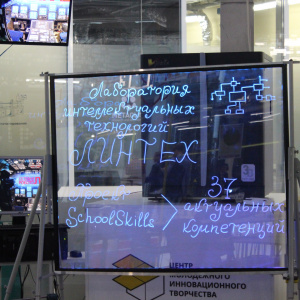 Лаборатория
интеллектуальных
технологий
ЛИНТЕХ
Проект
SchoolSkills
37
актуальных
компетенций
ЦЕНТР
МОЛОДЕЖНОГО
ИННОВАЦИОННОГО
ТВОРЧЕСТВА